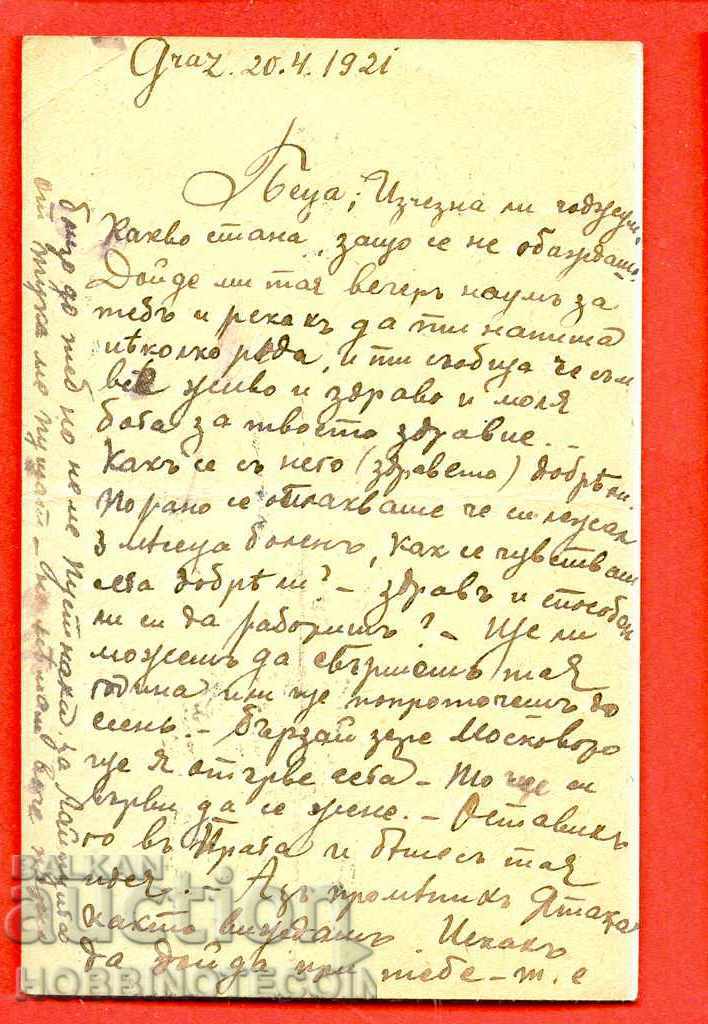 Graz. 20.4.1921
Пеца; Изчезна ли
Какво стана, защо се не обаждаш.
Дойде ми тая вечеръ наумъ за
тебъ и рекохъ да ти напиша
нѣколко реда, и ти съобща че съм
все живо и здраво и моля
бога за твоето здравие.-
Какъ се съ него (здравето) добрѣ ли.
Порано се оплакваше че си лежал
3 мѣсеца боленъ, как се чувстваш
сега добрѣ ли? - здравъ и способен
ли си да работишъ? - Ще ли
можешъ да свършешъ тая
година или ще попроточешъ до
есень. - Бързай зере
ще я отърве сега - То ще си
върви да се жене. - Оставихъ
го въ Прага и бѣше съ тая
идея. - Азъ промѣнихъ
както виждашъ Исках
да дойда при тебе - т. е
близо до теб но не ме пуснаха за
от тука ме
BALKAN
auction
HOBBINOTE.COM